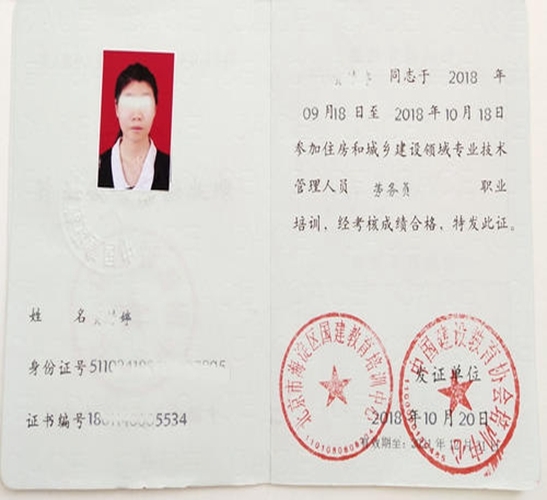 同志于 2018 年
09月18日至 2018年10月18日
参加住房和城乡建设领域专业技术
管理人员 劳务员 职业
培训，经考核成绩合格，特发此证。
姓 名 婷
身份证号
证书编号 5534
北京市海淀区国建教育培训中心
中国建设教育协会培训中心
发证单位
2018年10月20日
有效期至：